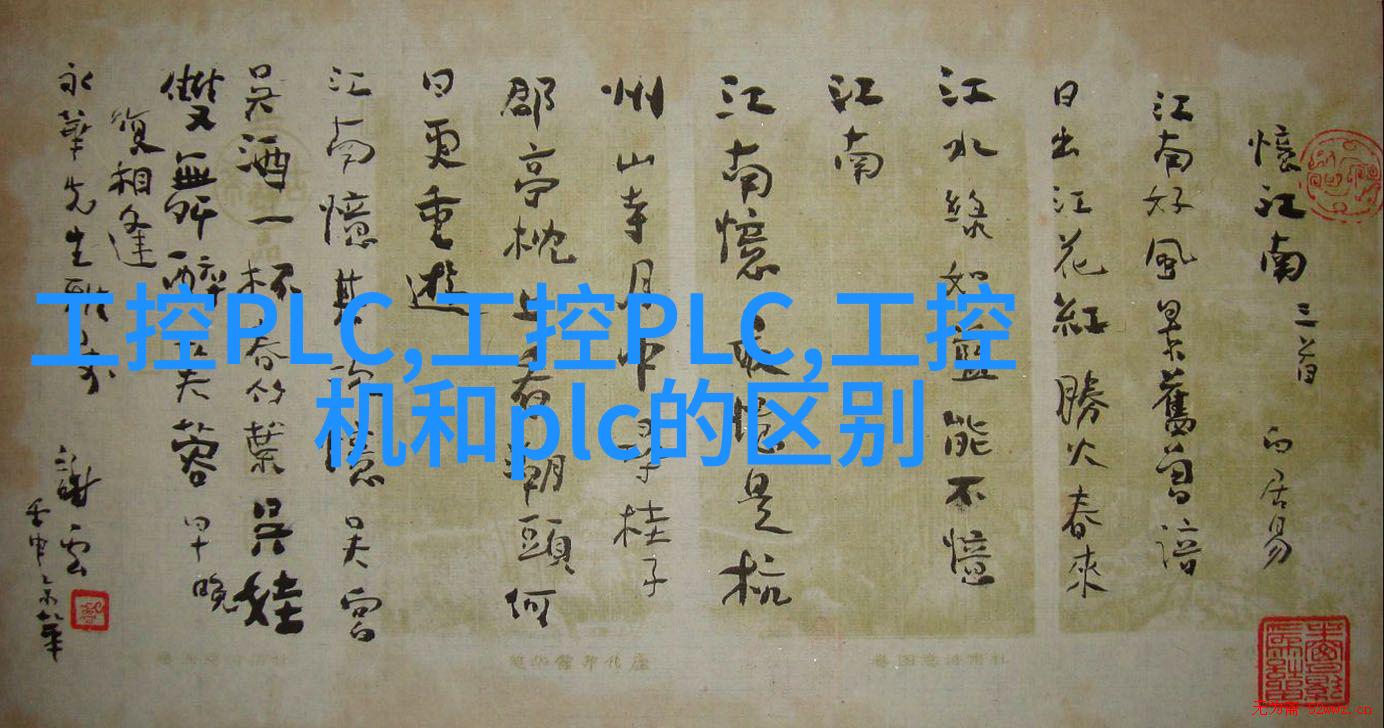 憶江南 三首
白居易
江南好風景舊曾諳
日出江花紅勝火春來
江水綠如藍能不憶
江南
江南憶最憶是杭
州山寺月中尋桂子
郡亭枕上看潮頭何
日更重遊
江南憶其次憶吳宮
吳酒一杯春竹葉吳娃
雙舞醉芙蓉早晚
復相逢
永華先生雅
謝雲
壬申
工控PLC,工控PLC,工控
机和plc的区别